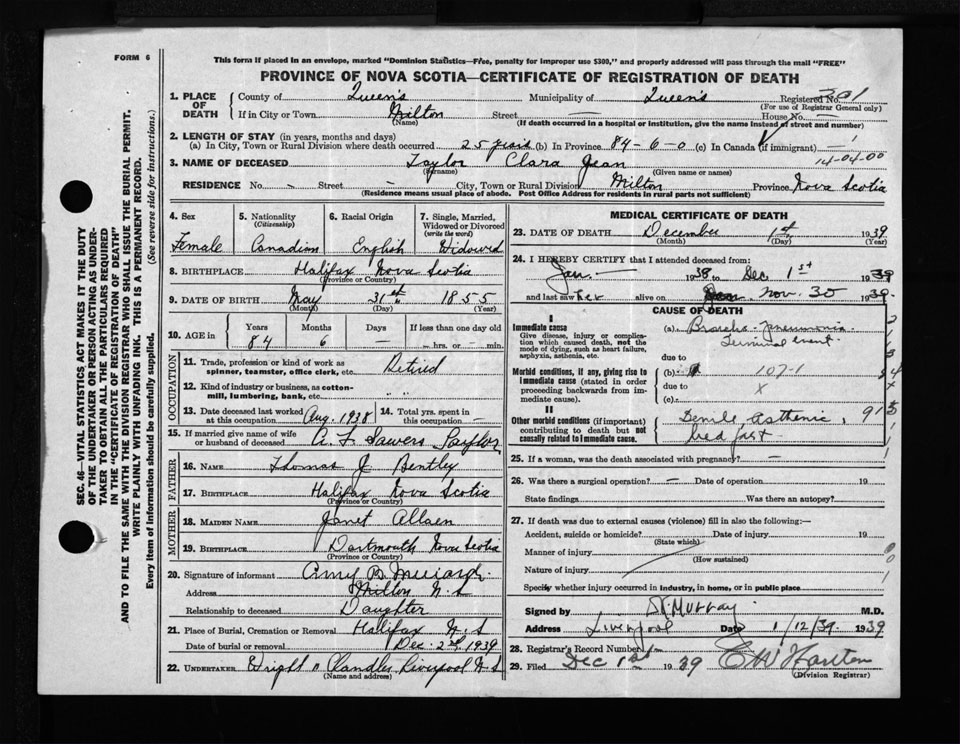 FORM 6
This form if placed in an envelope, marked "Dominion Statistics—Free, penalty for improper use $300," and properly addressed will pass through the mail "FREE"
PROVINCE OF NOVA SCOTIA—CERTIFICATE OF REGISTRATION OF DEATH
SEC. 46—VITAL STATISTICS ACT MAKES IT THE DUTY
OF THE UNDERTAKER OR PERSON ACTING AS UNDER-
TAKER TO OBTAIN ALL THE PARTICULARS REQUIRED
IN THE "CERTIFICATE OF REGISTRATION OF DEATH"
AND TO FILE THE SAME WITH THE DIVISION REGISTRAR WHO SHALL ISSUE THE BURIAL PERMIT.
WRITE PLAINLY WITH UNFADING INK. THIS IS A PERMANENT RECORD.
Every item of information should be carefully supplied. (See reverse side for instructions.)
1. PLACE OF DEATH
County of Queen's Municipality of Queen's Registered No. 301
(For use of Registrar General only)
If in City or Town Milton Street — House No. —
(Name) (If death occurred in a hospital or institution, give the name instead of street and number)
2. LENGTH OF STAY (in years, months and days)
(a) In City, Town or Rural Division where death occurred 25 years (b) In Province 84-6-0 (c) In Canada (if immigrant) —
14-04-00
3. NAME OF DECEASED Taylor Clara Jean
(Surname) (Given name or names)
RESIDENCE No. - Street - City, Town or Rural Division Milton Province Nova Scotia
(Residence means usual place of abode. Post Office Address for residents in rural parts not sufficient)
4. Sex Female
5. Nationality (Citizenship) Canadian
6. Racial Origin English
7. Single, Married, Widowed or Divorced (write the word) Widowed
8. BIRTHPLACE Halifax Nova Scotia
(Province or Country)
9. DATE OF BIRTH May 31st 1855
(Month) (Day) (Year)
10. AGE in Years 84 Months 6 Days — If less than one day old — hrs. or — min.
OCCUPATION
11. Trade, profession or kind of work as spinner, teamster, office clerk, etc. Retired
12. Kind of industry or business, as cotton-mill, lumbering, bank, etc.
13. Date deceased last worked at this occupation Aug. 1938
14. Total yrs. spent in this occupation —
15. If married give name of wife or husband of deceased A. F. Sawers Taylor
FATHER
16. NAME Thomas J Bentley
17. BIRTHPLACE Halifax Nova Scotia
(Province or Country)
MOTHER
18. MAIDEN NAME Janet Allan
19. BIRTHPLACE Dartmouth Nova Scotia
(Province or Country)
20. Signature of informant Amy B.
Address Milton N.S
Relationship to deceased Daughter
21. Place of Burial, Cremation or Removal Halifax N.S
Date of burial or removal Dec. 2nd, 1939
22. UNDERTAKER Wright n Chandler Liverpool N.S
(Name and address)
MEDICAL CERTIFICATE OF DEATH
23. DATE OF DEATH December 1st 1939
(Month) (Day) (Year)
24. I HEREBY CERTIFY that I attended deceased from:
Jan. — 1938 to Dec. 1st 1939
and last saw her alive on Nov. 30 1939.
CAUSE OF DEATH
I
Immediate cause
Give disease, injury or complication which caused death, not the mode of dying, such as heart failure, asphyxia, asthenia, etc.
(a) Broncho-pneumonia
Terminal event
due to
Morbid conditions, if any, giving rise to Immediate cause (stated in order proceeding backwards from immediate cause).
(b) 107-1
due to X
(c)
II
Other morbid conditions (if important) contributing to death but not causally related to Immediate cause.
Senile asthenic, 91
bed fast
25. If a woman, was the death associated with pregnancy? —
26. Was there a surgical operation? — Date of operation 19
State findings Was there an autopsy?
27. If death was due to external causes (violence) fill in also the following:—
Accident, suicide or homicide? Date of injury 19
(State which)
Manner of injury
(How sustained)
Nature of injury
Specify whether injury occurred in industry, in home, or in public place
Signed by Murray M.D.
Address Liverpool Date 1/12/39. 1939
28. Registrar's Record Number
29. Filed Dec 1st 1939
(Division Registrar)